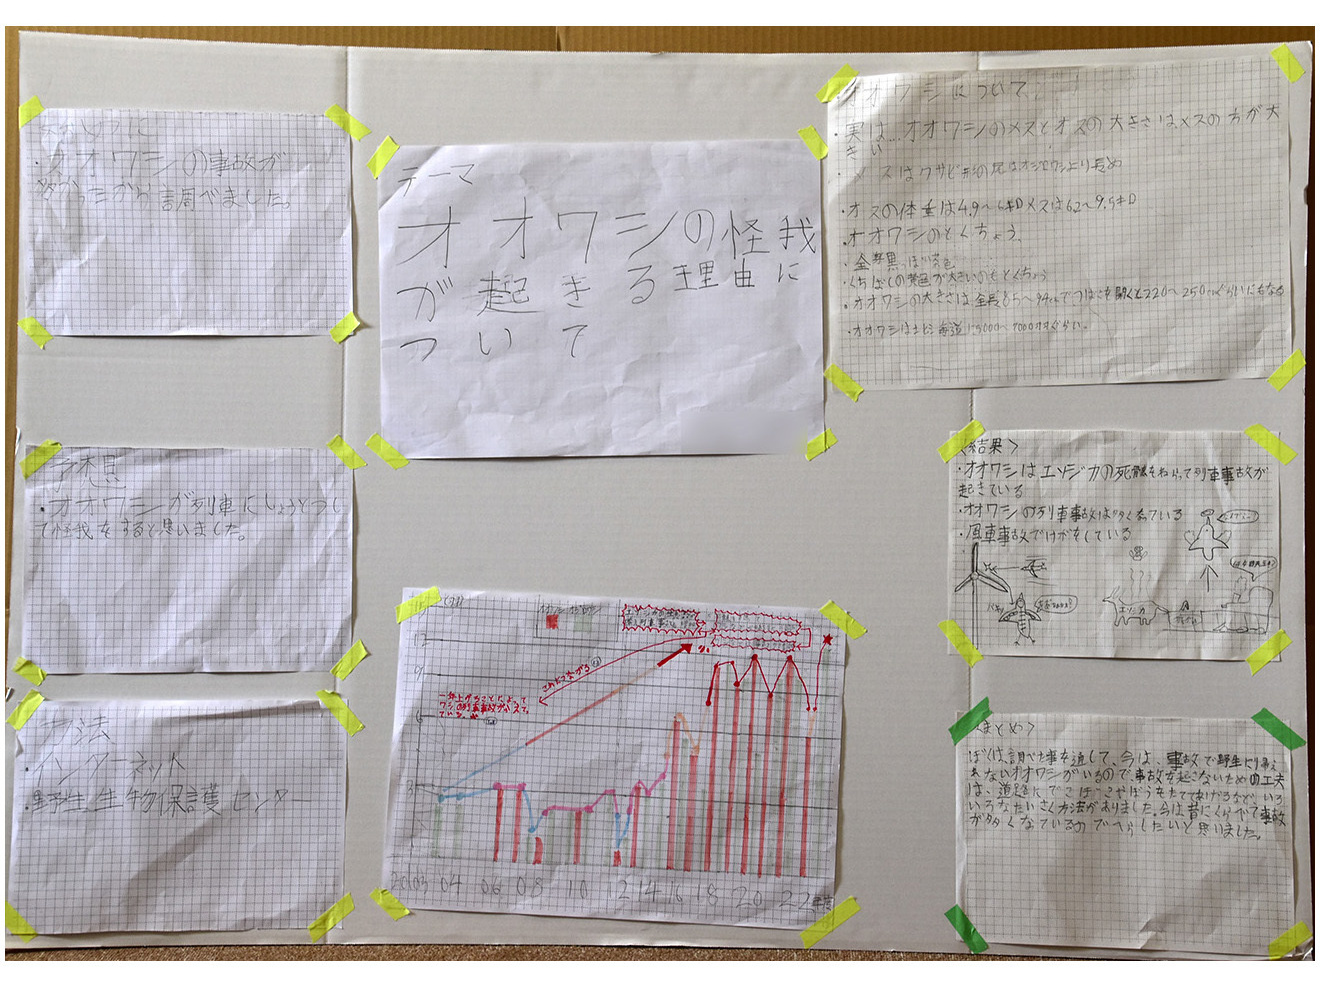 オオワシの事故が
調べました。
予想
・オオワシが列車にしょうとつし
て怪我をすると思いました。
方法
・インターネット
・野生生物保護センター
テーマ
オオワシの怪我
が起きる理由に
ついて
オオワシについて
・実は…オオワシのメスとオスの大きさはメスの方が大
きい
・オスの体重は4.9〜6キロメスは6.2〜9.5キロ
・オオワシのとくちょう
・全身黒っぽい茶色
・くちばしの黄色が大きいのもとくちょう
・オオワシの大きさは全長85〜94cmでつばさを開くと220〜250cmぐらいにもなる
・オオワシは北海道に5000〜7000
〈結果〉
・オオワシはエゾジカの死骸をねらって列車事故が
起きている
・オオワシの列車事故は多く
・風車事故でけがをしている
エゾシカ
12
9
6
3
これにつながる
2003 04 06 08 10 12 14 16 18 20 22 年度
〈まとめ〉
ぼくは、調べた事を通して、今は、事故で野生に
ないオオワシがいるので、事故を起こさないための工夫
は、道路に
いろなたいさく方法がありました。今は昔にくらべて事故
が多くなているのでへらしたいと思いました。